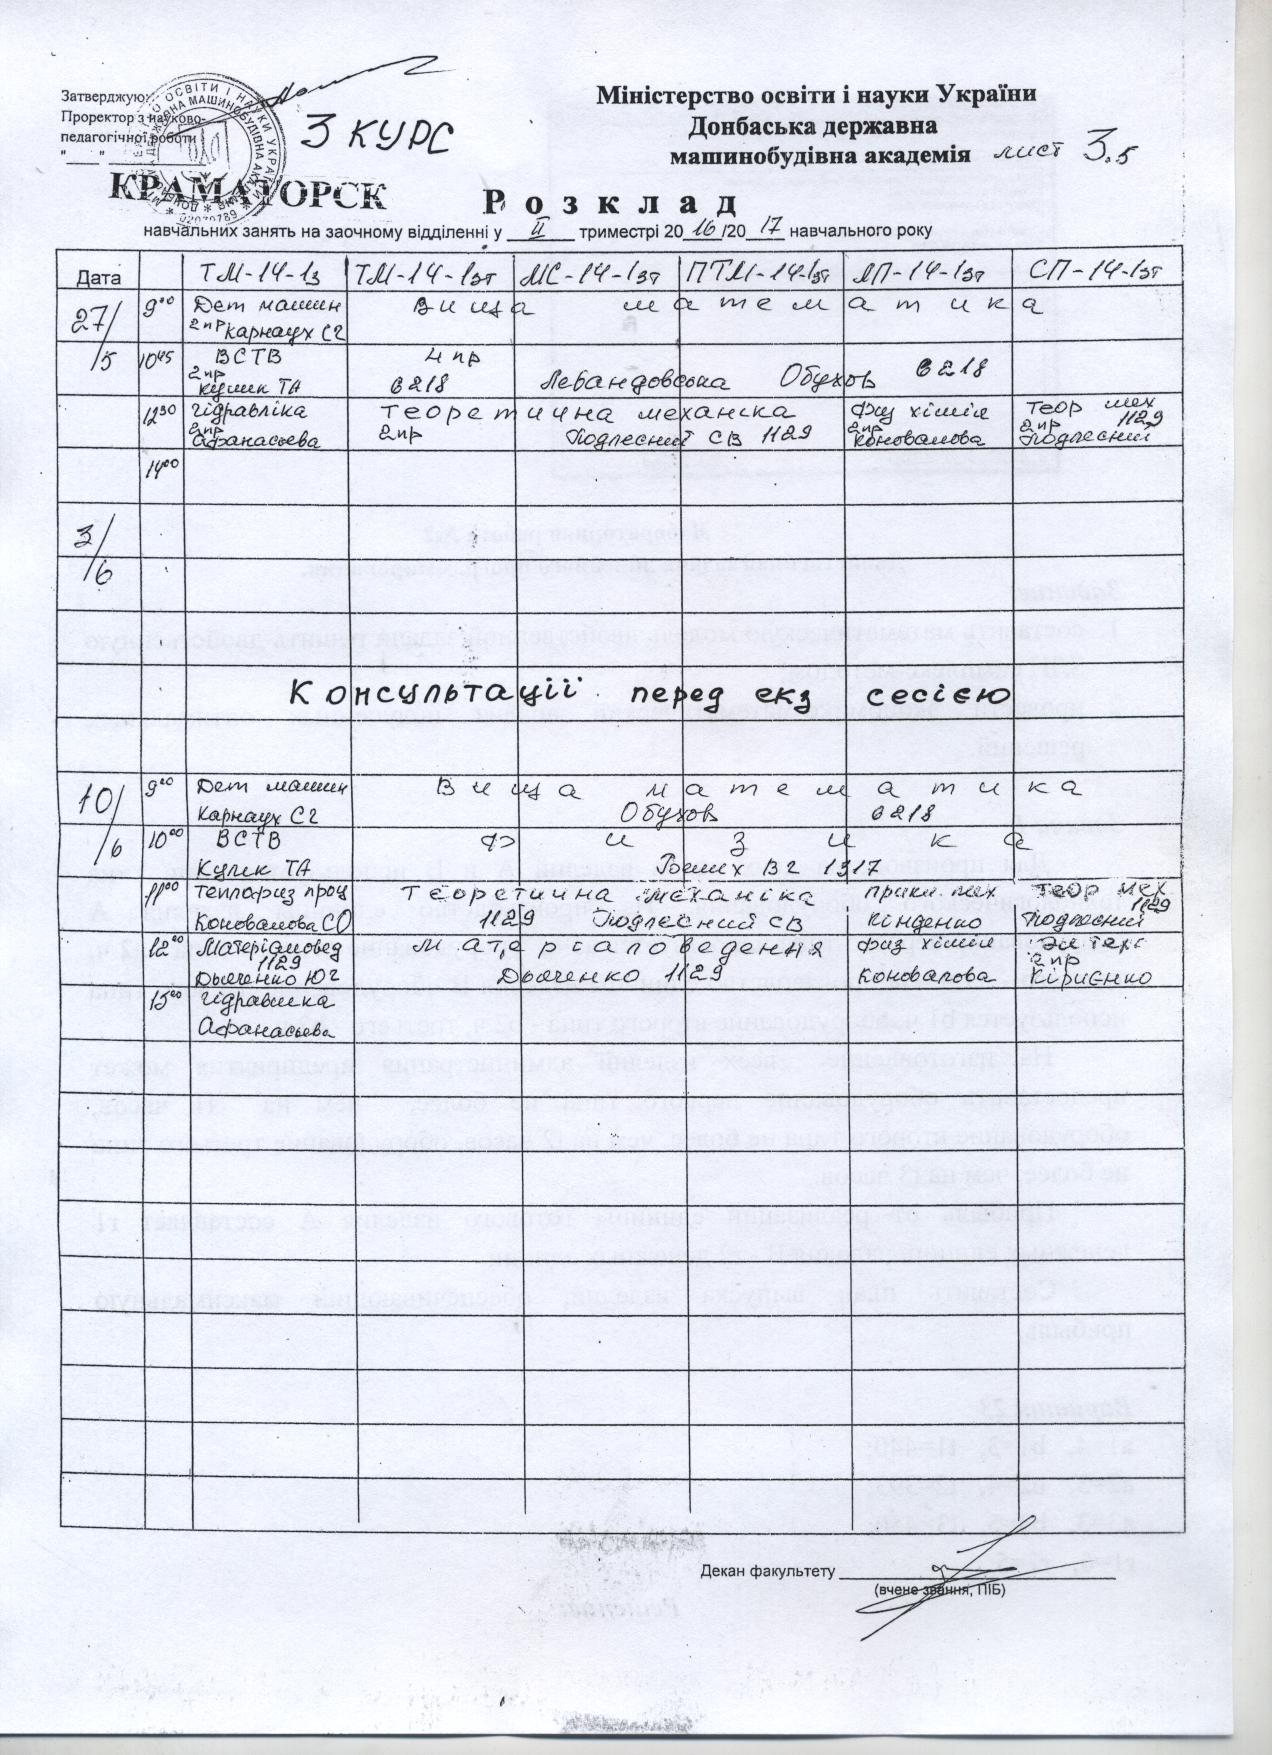 Затверджую
Проректор з науково-
педагогічної роботи
3 КУРС
Міністерство освіти і науки України
Донбаська державна
машинобудівна академія
лист 3.5
КРАМАТОРСК
Розклад
навчальних занять на заочному відділенні у II триместрі 2016/2017 навчального року
Дата ТМ-14-1з ТМ-14-1зт МС-14-1зт ПТМ-14-1зт ЛП-14-1зт СП-14-1зт
27/5 9⁰⁰ Дет машин Вища математика
2пр Карнаух СГ
10⁴⁵ ВСТВ 4 пр
2пр
Кулик ТА 6218 Левандовська Обухов 6218
12³⁰ гідравліка теоретична механіка физ хімія теор мех
2пр Афанасьева 2пр Подлесний СВ 1129 2пр Коновалова 2пр 1129 Подлесний
14⁰⁰
3/6
Консультації перед екз сесією
10/6 9⁰⁰ Дет машин Вища математика
Карнаух СГ Обухов 6218
10⁰⁰ ВСТВ Физика
Кулик ТА ВГ 1317
11⁰⁰ теплофиз проц теоретична механіка прикл мех теор мех
Коновалова СО 1129 Подлесний СВ Кінденко 1129 Подлесний
12⁰⁰ Матеріаловед матеріаловедення физ хімія
1129 2пр
Дьяченко ЮГ Дьяченко 1129 Коновалова Кіриєнко
15⁰⁰ гідравлика
Афанасьева
Декан факультету
(вчене звання, ПІБ)